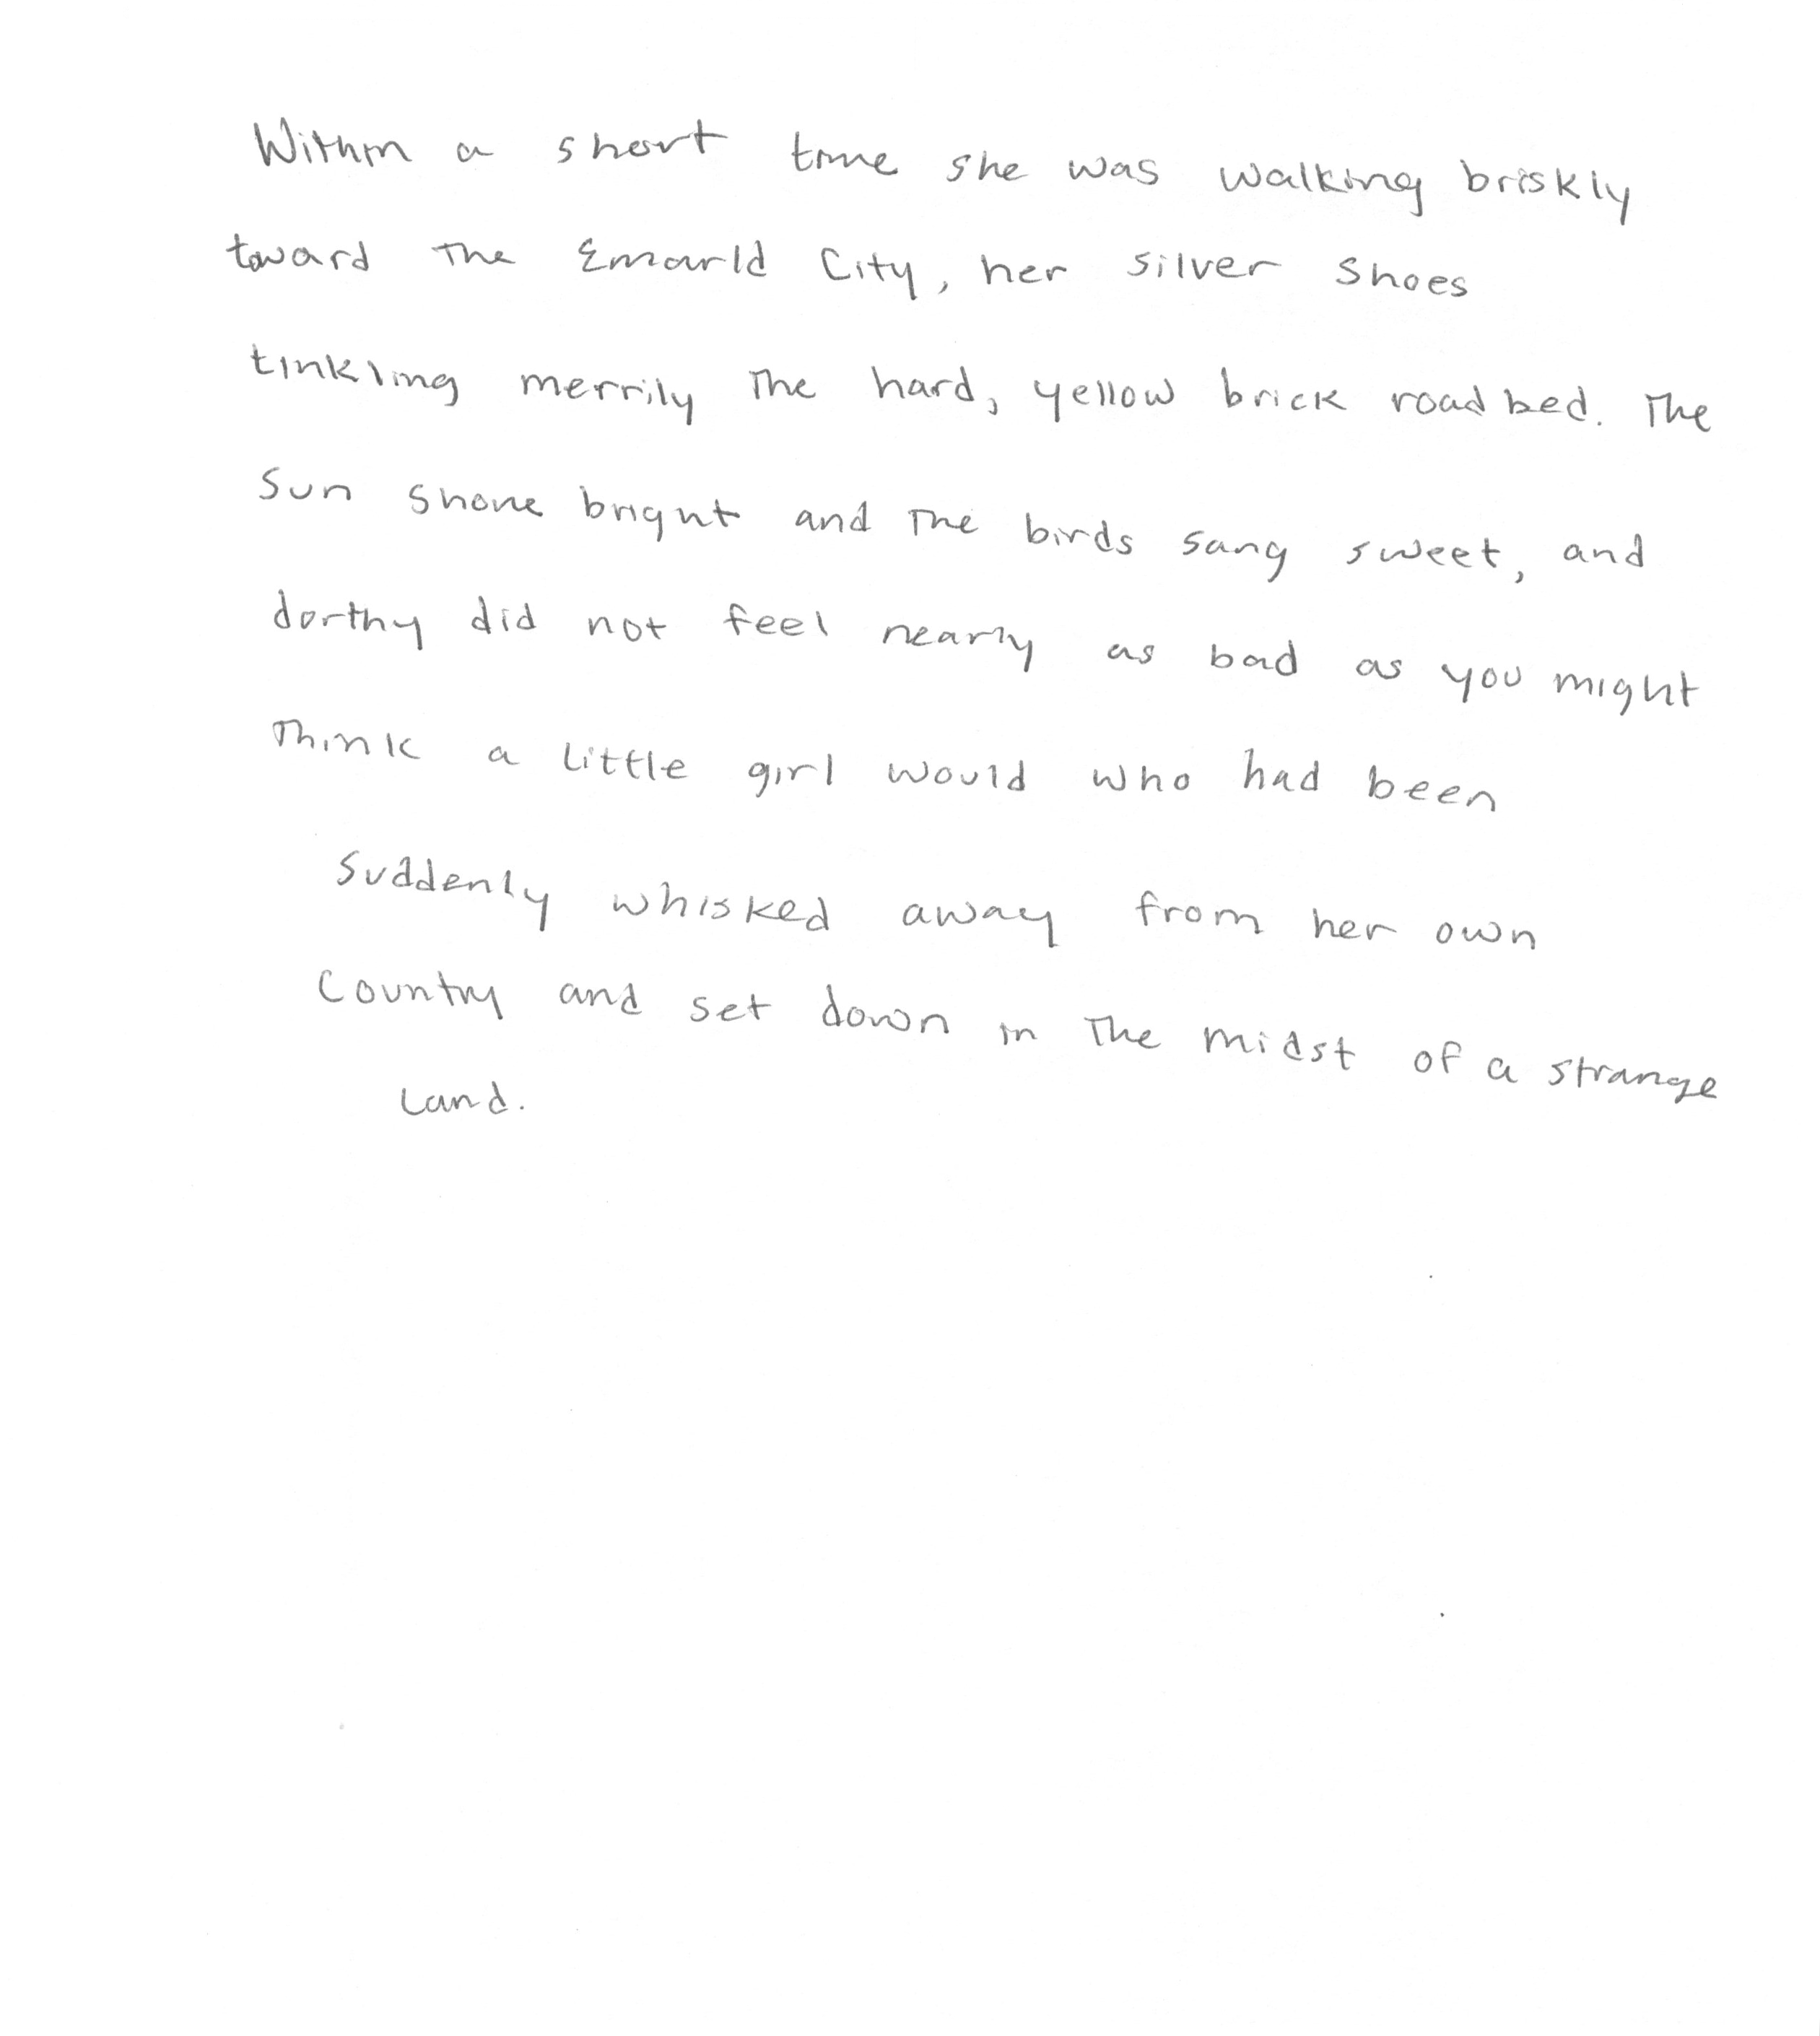 Within a short time she was walking briskly
toward the Emarld City, her silver shoes
tinkling merrily the hard, yellow brick roadbed. The
sun shone bright and the birds sang sweet, and
dorthy did not feel nearly as bad as you might
think a little girl would who had been
suddenly whisked away from her own
country and set down in the midst of a strange
land.